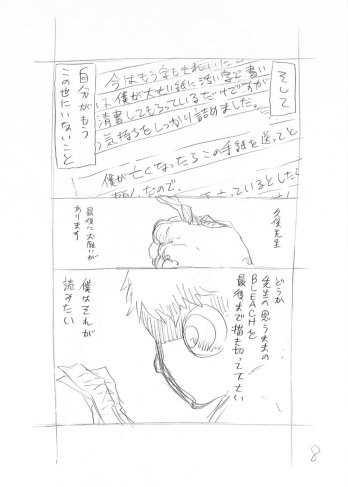 そして
今はもう字もきれいに
は僕が大せい紙に汚い字で書い
清書してもらっているだけですが
気持ちをしっかり詰めました。
僕が亡くなったらこの手紙を送ってと
頼んだので、
っているとしたら
自分がもう
この世にいないこと
久保先生
最後にお願いが
あります
どうか
先生の思うままの
BLEACHを
最後まで描き切って下さい
僕はそれが
読みたい
8